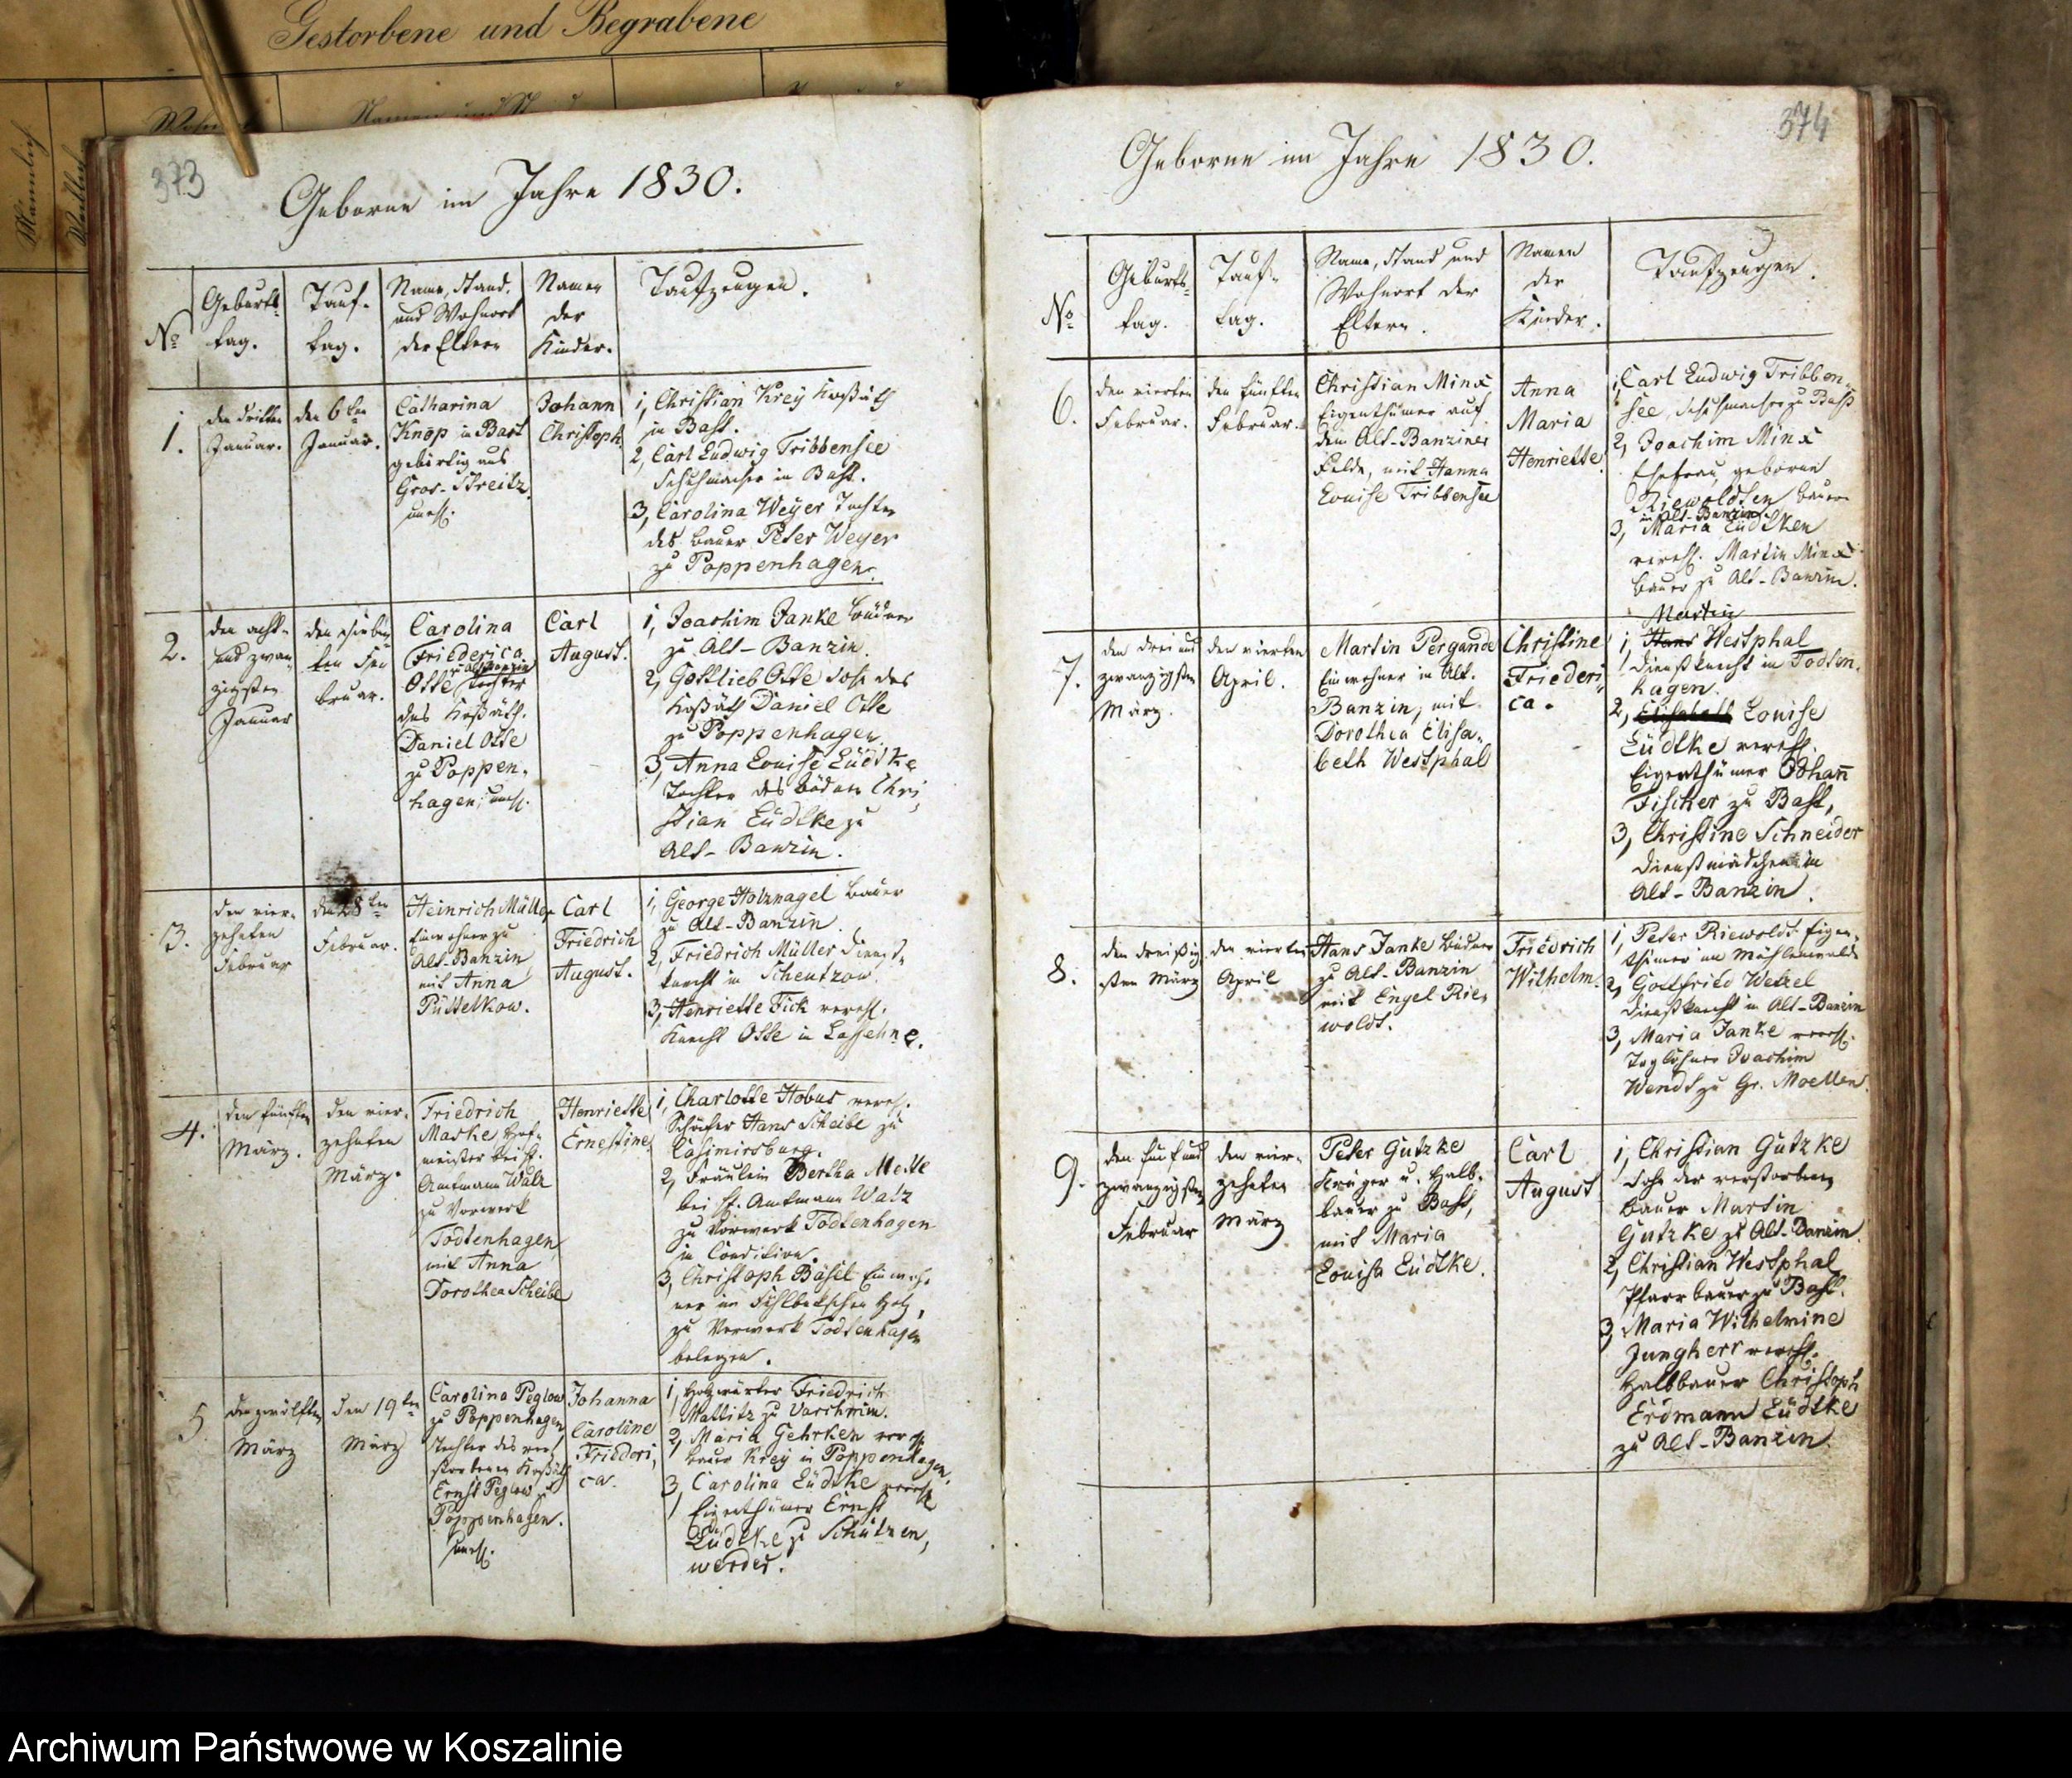 Gestorbene und Begrabene
373
Geborne im Jahre 1830.
No
Geburts-
tag.
Tauf-
tag.
Name, Stand,
und Wohnort
der Eltern
Namen
der
Kinder.
Taufzeugen.
1.
den dritten
Januar.
den 6ten
Januar.
Catharina
Knop in Bast
gebürtig aus
Gros-Streitz
unehl.
Johann
Christoph
1, Christian Krey Koßäth
in Bast.
2, Carl Ludwig Tribbensee
Schuhmacher in Bast.
3, Carolina Weyer Tochter
des Bauer Peter Weyer
zu Poppenhagen.
2.
den acht-
und zwan-
zigsten
Januar
den sieben-
ten Fe-
bruar.
Carolina
Friederica
zu Alt Banzin
Otte Tochter
des Koßäth.
Daniel Otte
zu Poppen-
hagen, unehl.
Carl
August.
1, Joachim Janke Büdner
zu Alt-Banzin.
2, Gottlieb Otte Sohn des
Koßäth Daniel Otte
zu Poppenhagen.
3, Anna Louise Lüdtke
Tochter des Büdner Chri-
stian Lüdtke zu
Alt-Banzin.
3.
den vier-
zehnten
Februar
den 28ten
Februar.
Heinrich Müller
Einwohner zu
Alt-Banzin
mit Anna
Püttelkow.
Carl
Friedrich
August.
1, George Holznagel Bauer
zu Alt-Banzin.
2, Friedrich Müller Dienst-
knecht in Schentzow
3, Henriette Fick verehl.
Knecht Otte in Lassehne.
4.
den fünften
März.
den vier-
zehnten
März.
Friedrich
Maske Hof-
meister bei H.
Amtmann Walz
zu Vorwerk
Todtenhagen
mit Anna
Dorothea Scheibe
Henriette
Ernestine
1, Charlotte Hobus verehl.
Schäfer Hans Scheibe zu
Casimirsburg.
2, Fräulein Bertha
bei H. Amtmann Walz
zu Vorwerk Todtenhagen
in Condition.
3, Christoph Bäsel Einwoh-
ner im Holz,
zu Vorwerk Todtenhagen
belegen.
5
den zwölften
März
den 19ten
März
Carolina Peglow
zu Poppenhagen
Tochter des ver-
storbenen Koßäth
Ernst Peglow zu
Poppenhagen.
unehl.
Johanna
Caroline
Friederi-
ca.
1, Holzwärter Friedrich
Mallitz zu Varchmin.
2, Maria Gehrken verehl.
Bauer Krey in Poppenhagen.
3, Carolina Lüdtke verehl.
Eigenthümer Ernst
Lüdtke zu Schützen-
werder.
374
Geborne im Jahre 1830.
No
Geburts-
tag.
Tauf-
tag.
Name, Stand und
Wohnort der
Eltern.
Namen
der
Kinder.
Taufzeugen.
6.
den vierten
Februar.
den fünften
Februar.
Christian Minx
Eigenthümer auf
dem Alt-Banziner
Felde, mit Hanna
Louise Tribbensee
Anna
Maria
Henriette.
1, Carl Ludwig Tribben-
see, Schuhmacher zu Bast
2, Joachim Minx
Ehefrau, geborne
Riewoldten Bauer
in Alt-Banzin
3, Maria Lüdtken
verehl. Martin Minx
Bauer zu Alt-Banzin.
7.
den drei und
zwanzigsten
März.
den vierten
April.
Martin Pergande
Einwohner in Alt-
Banzin, mit
Dorothea Elisa-
beth Westphal
Christine
Friederi-
ca.
Martin
1, Hans Westphal
Dienstknecht in Todten-
hagen.
2, Elisabeth Louise
Lüdtke verehl.
Eigenthümer Johann
Fischer zu Bast,
3, Christine Schneider
Dienstmädchen in
Alt-Banzin.
8.
den dreißig-
sten März
den vierten
April
Hans Janke Büdner
zu Alt-Banzin
mit Engel Rie-
woldt.
Friedrich
Wilhelm.
1, Peter Riewoldt Eigen-
thümer im Mühlenwalde
2, Gottfried Wetzel
Dienstknecht in Alt-Banzin
3, Maria Janke verehl.
Taglöhner Joachim
Wendt zu Gr. Moellen.
9.
den fünf und
zwanzigsten
Februar
den vier-
zehnten
März
Peter Gutzke
Krüger u. Halb-
bauer zu Bast,
mit Maria
Louisa Lüdtke.
Carl
August
1, Christian Gutzke
Sohn des verstorbenen
Bauer Martin
Gutzke zu Alt-Banzin.
2, Christian Westphal
Pfarrbauer zu Bast.
3, Maria Wilhelmine
Jungherr verehl.
Halbbauer Christoph
Erdmann Lüdtke
zu Alt-Banzin.
Archiwum Państwowe w Koszalinie